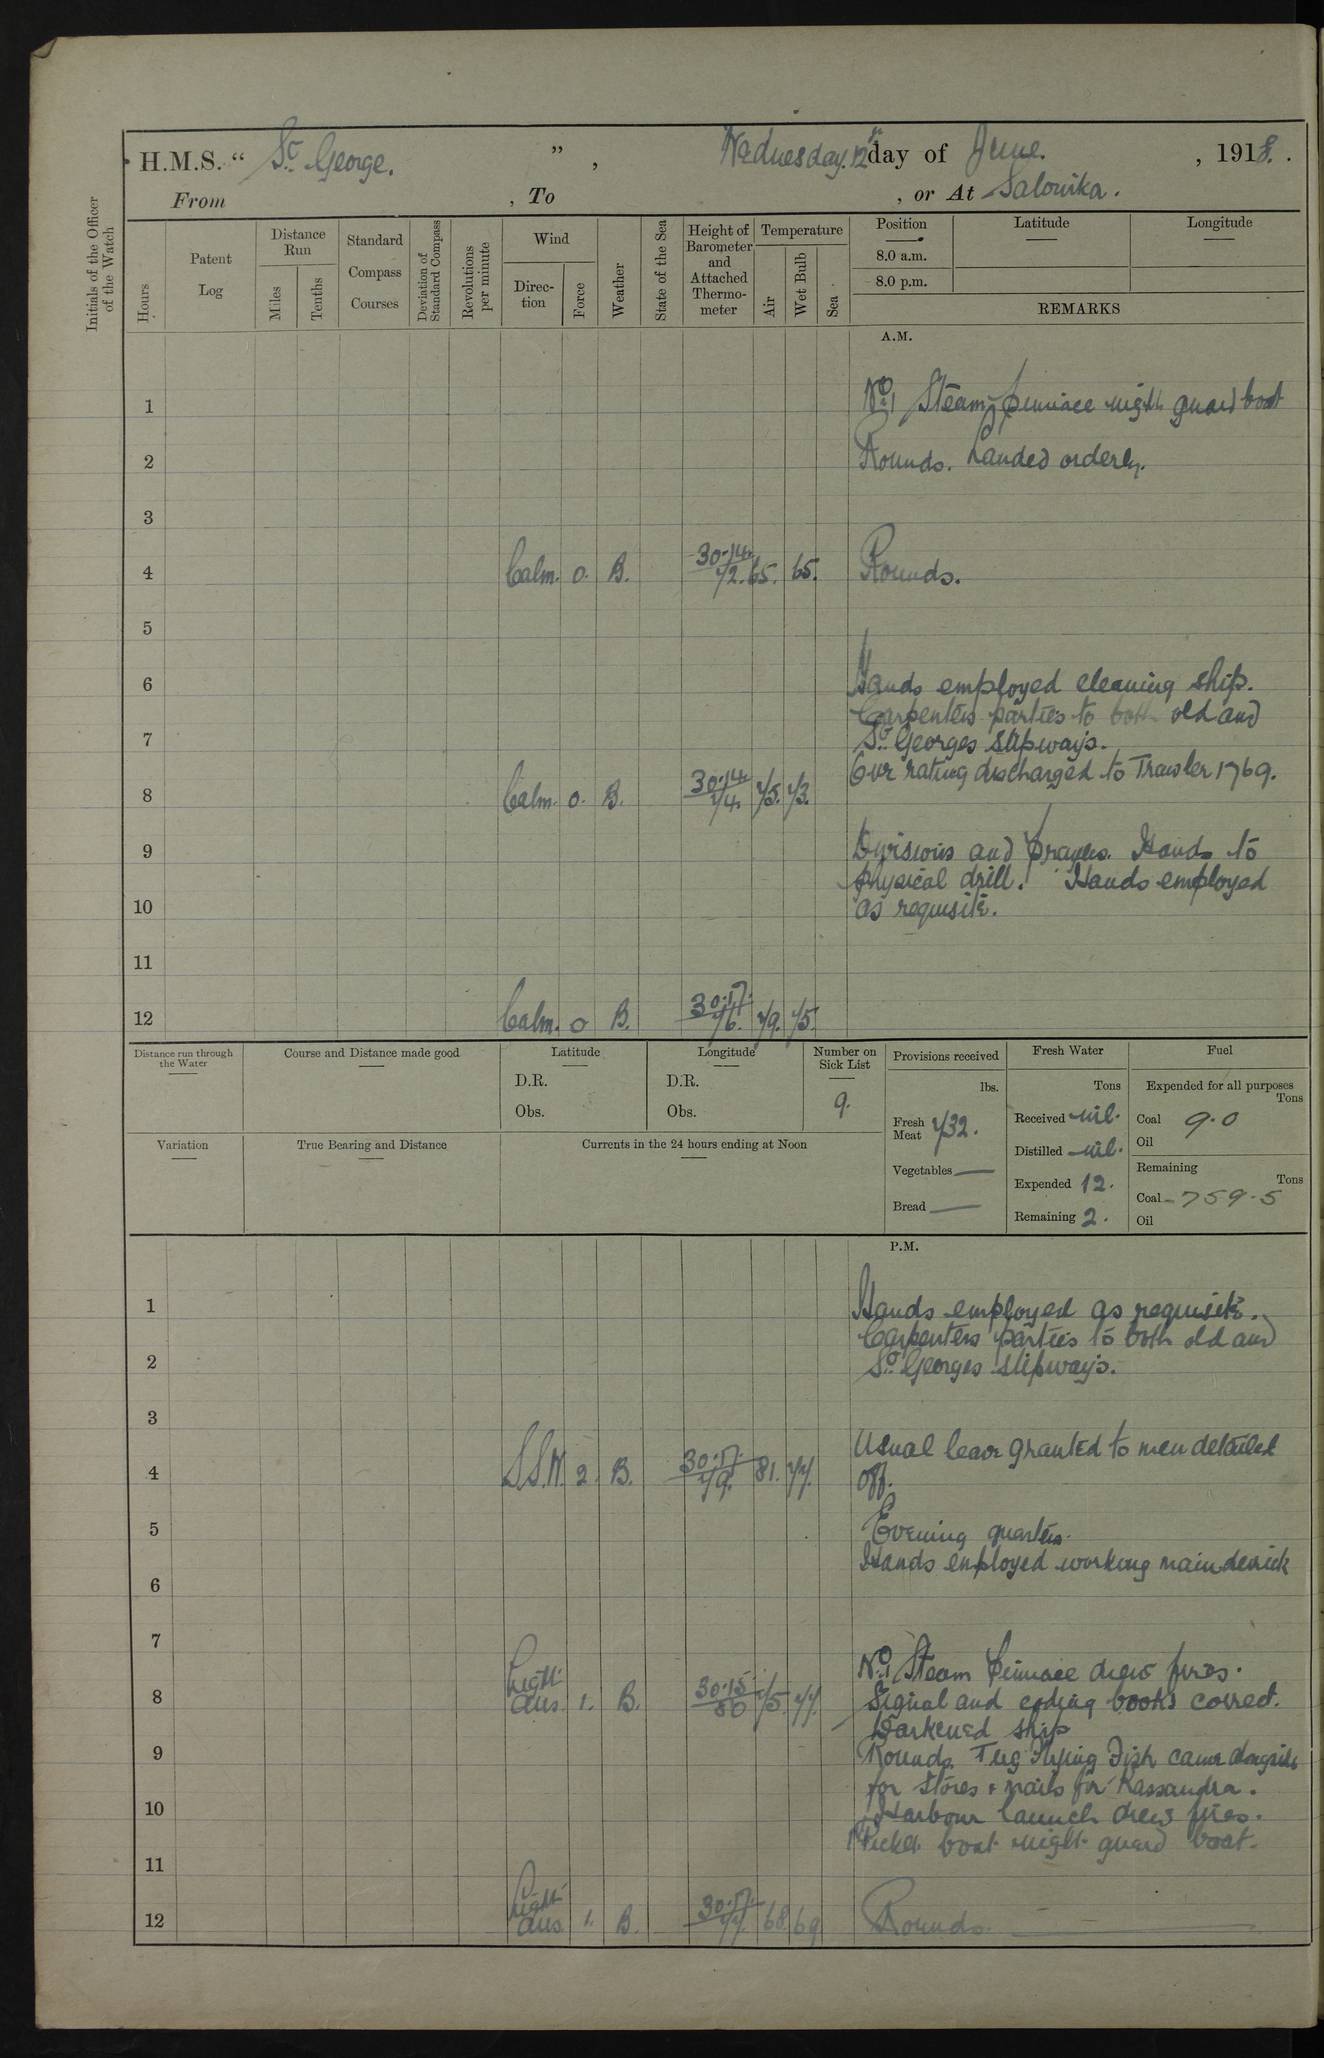 H.M.S. " St. George. " , Wednesday. 12th day of June. , 1918. .
From , To , or At Salonika.
Initials of the Officer of the Watch
Hours
Patent Log
Distance Run
Miles
Tenths
Standard Compass Courses
Deviation of Standard Compass
Revolutions per minute
Wind
Direction
Force
Weather
State of the Sea
Height of Barometer and Attached Thermometer
Temperature
Air
Wet Bulb
Sea
Position
8.0 a.m.
8.0 p.m.
Latitude
Longitude
REMARKS
A.M.
1 No. 1 Steam pinnace night guard boat
2 Rounds. Landed orderly.
3
4 Calm. 0. B. 30.14. 72. 65. 65. Rounds.
5
6 Hands employed cleaning ship.
Carpenters parties to both old and
7 St. Georges slipways.
One rating discharged to Trawler 1769.
8 Calm. 0. B. 30.14. 74. 75. 73.
9 Divisions and prayers. Hands to
physical drill. Hands employed
10 as requisite.
11
12 Calm. 0 B. 30.17. 76. 79. 75.
Distance run through the Water
Course and Distance made good
Latitude
D.R.
Obs.
Longitude
D.R.
Obs.
Number on Sick List
9.
Provisions received
lbs.
Fresh Meat 732.
Vegetables —
Bread —
Fresh Water
Tons
Received nil.
Distilled nil.
Expended 12.
Remaining 2.
Fuel
Expended for all purposes
Tons
Coal 9.0
Oil
Remaining
Tons
Coal 759.5
Oil
Variation
True Bearing and Distance
Currents in the 24 hours ending at Noon
P.M.
1 Hands employed as requisite.
Carpenters parties to both old and
2 St. Georges slipways.
3
Usual leave granted to men detailed
4 S.S.W. 2. B. 30.17. 79. 81. 77. off.
5 Evening quarters.
Hands employed working main derrick
6
7
No. 1 Steam Pinnace drew fires.
8 Light airs. 1. B. 30.15. 80 75. 77. Signal and coding books correct.
Darkened ship
9 Rounds. Tug Flying Fish came alongside
for stores & mails for Kassandra.
10 Harbour launch drew fires.
Picket boat night guard boat.
11
12 Light airs. 1. B. 30.17. 77. 68. 69 Rounds.